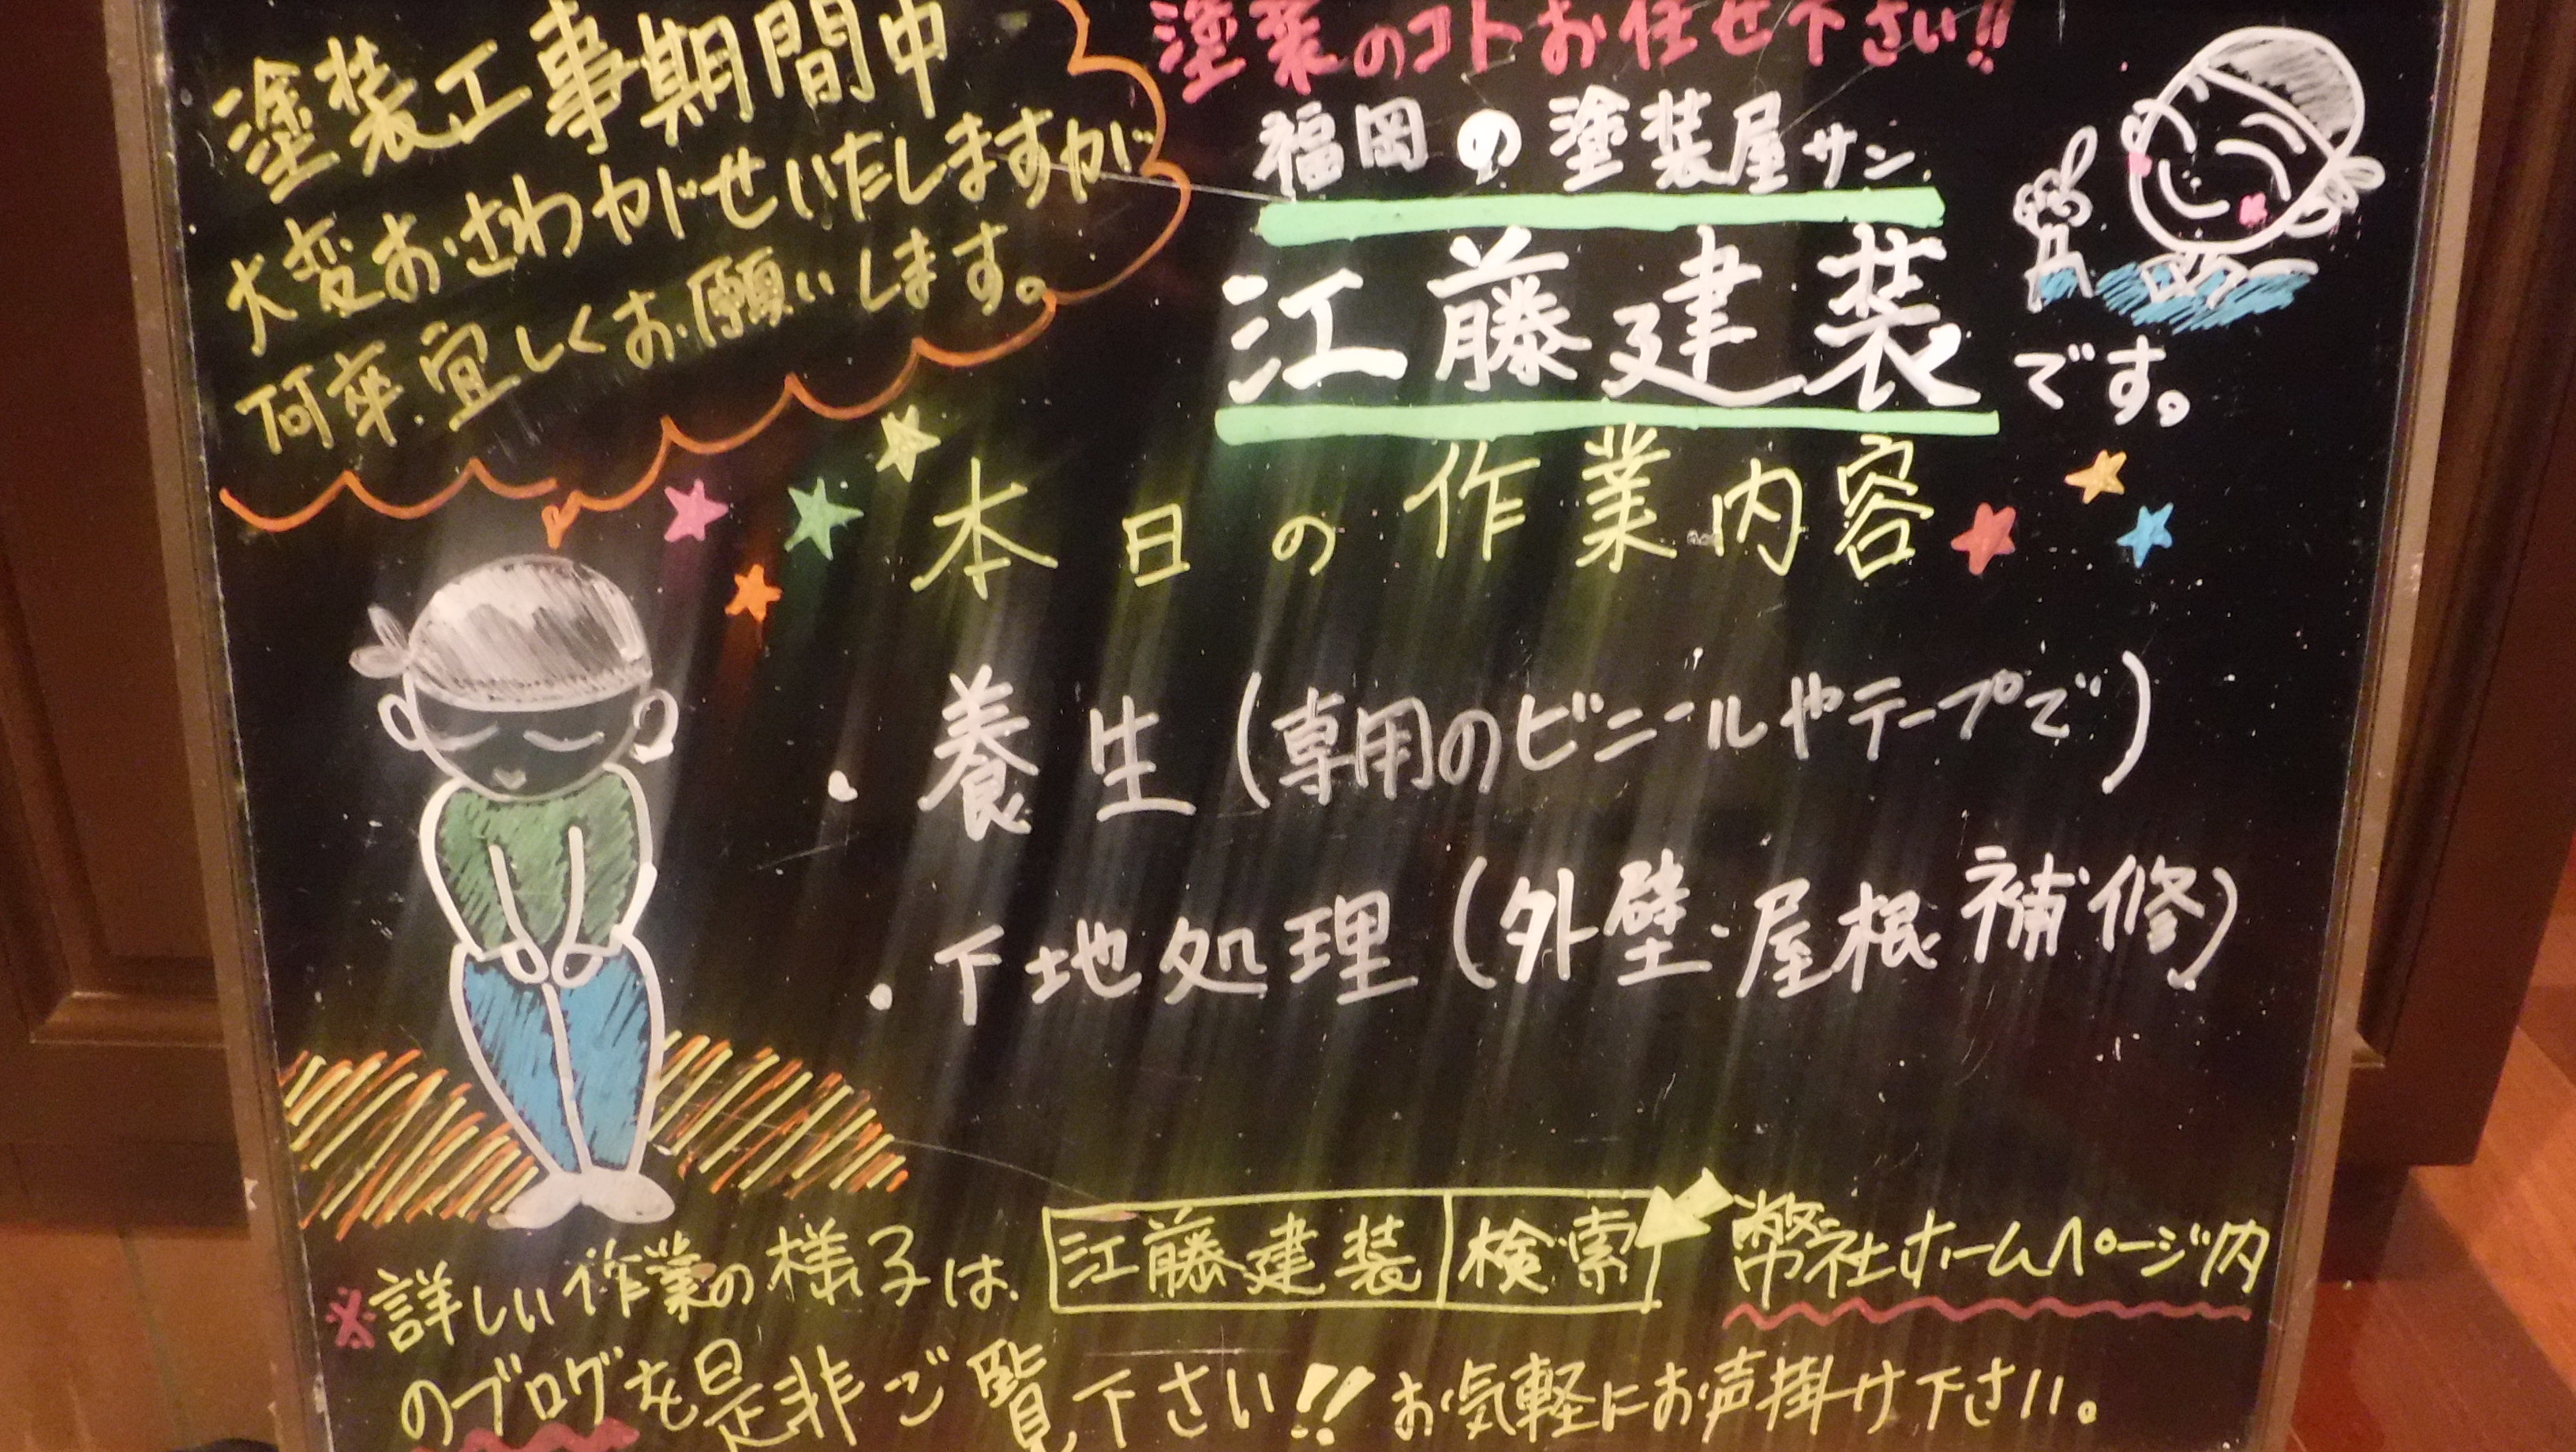 塗装工事期間中
大変おさわがせいたしますが
何卒宜しくお願いします。
塗装のコトお任せ下さい!!
福岡の塗装屋サン
江藤建装です。
本日の作業内容
・養生(専用のビニールやテープで)
・下地処理(外壁・屋根補修)
※詳しい作業の様子は、江藤建装 検索 弊社ホームページ内
のブログを是非ご覧下さい!!お気軽にお声掛け下さい。